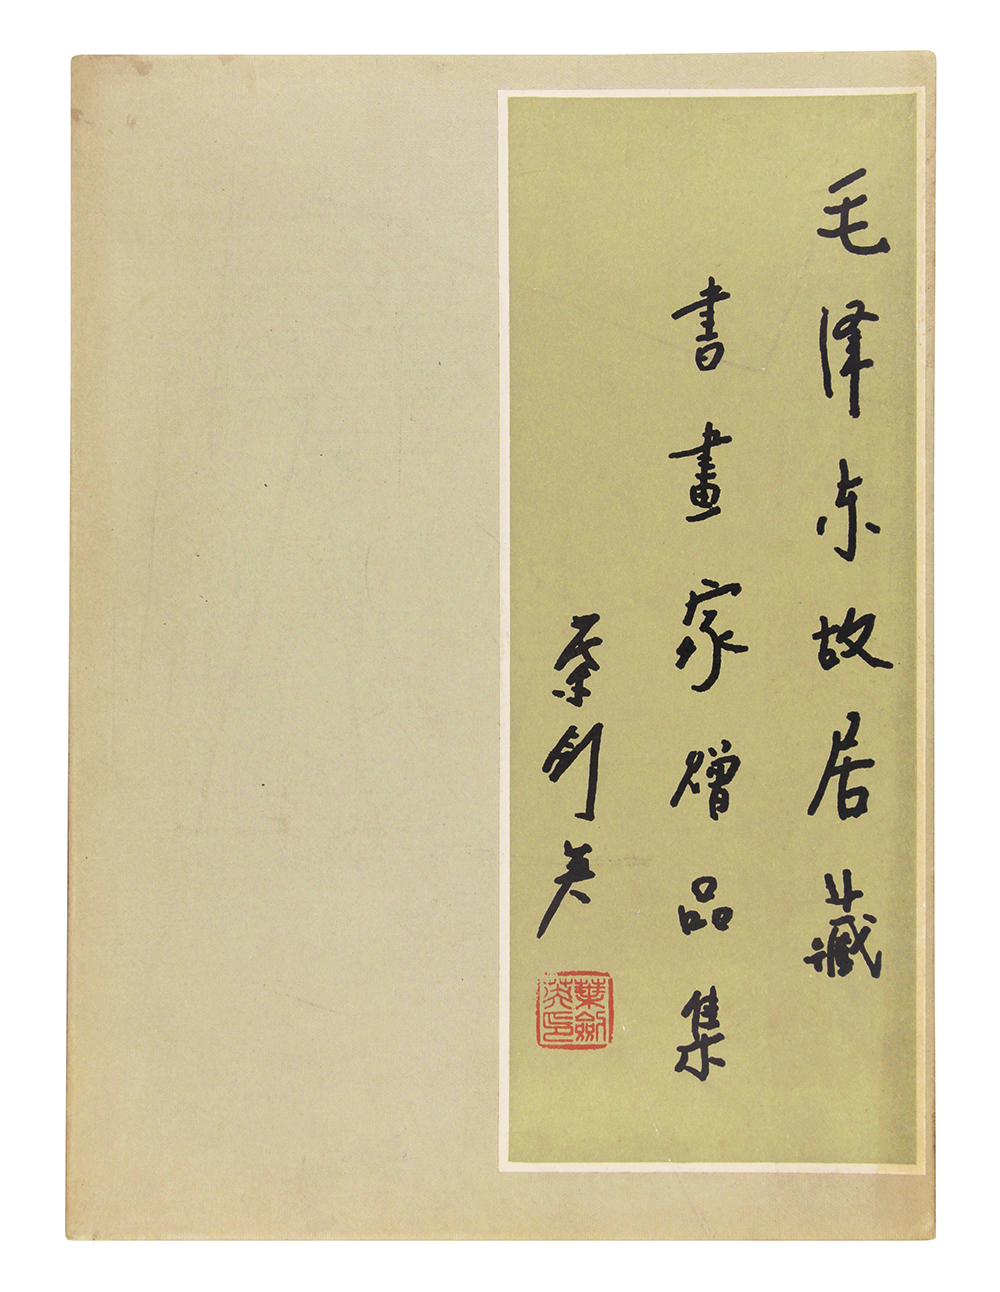 毛泽东故居藏
書畫家赠品集
葉剑英
葉劍英印